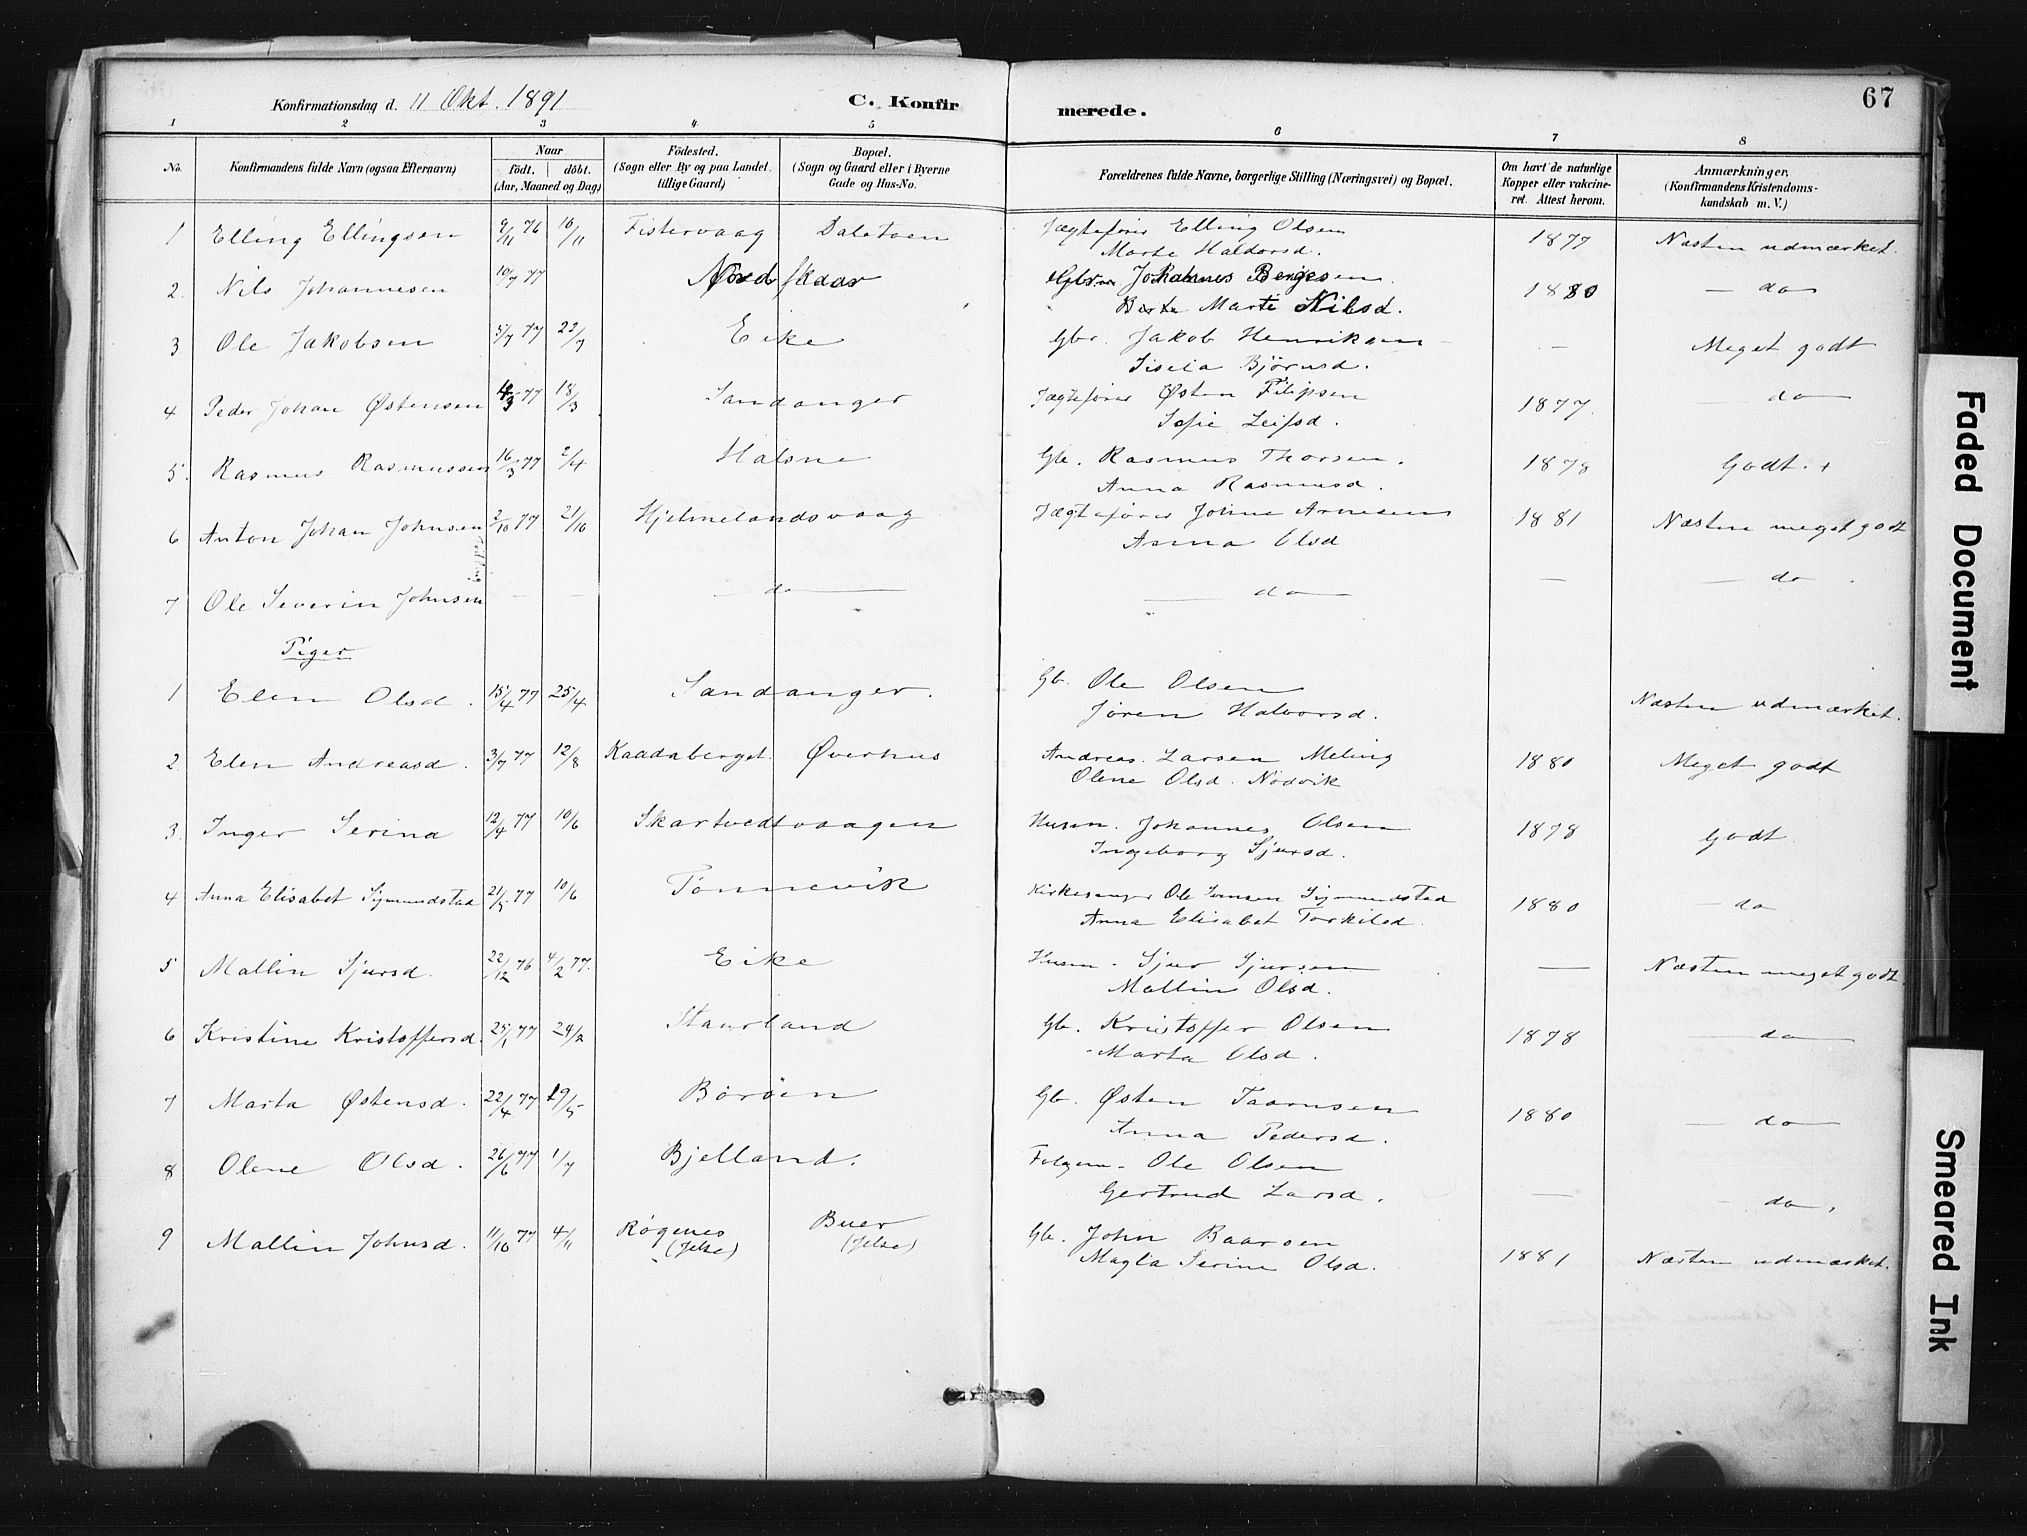 67
Konfirmationsdag d. 11 Okt. 1891 C. Konfir merede.
1 2 3 4 5 6 7 8
No. Konfirmandens fulde Navn (ogsaa Efternavn) Naar Födt. döbt. (Aar, Maaned og Dag) Födested. (Sogn eller By og paa Landet tillige Gaard) Bopæl. (Sogn og Gaard eller i Byerne Gade og Hus-No. Forældrenes fulde Navne, borgerlige Stilling (Næringsvei) og Bopæl. Om havt de naturlige Kopper eller vakcineret. Attest herom. Anmærkninger. (Konfirmandens Kristendomskundskab m. V.)
1 Elling Ellingsen 9/11 76 16/11 Fistervaag Dalatoen Jægtefører Elling Olsen 1877 Næsten udmærket.
Marte Haldorsd.
2. Nils Johannesen 10/7 77 Nordskaar Gbr. Johannes Bergesen 1880 — do
Berta Marte Nilsd.
3 Ole Jakobsen 5/7 77 22/7 Eike Gbr. Jakob Henriksen — Meget godt
Siselia Bjørnsd.
4 Peder Johan Østensen 4/3 77 18/3 Sandanger Jægtefører Østen Filipsen 1877. — do
Sofie Leifsd.
5. Rasmus Rasmussen 16/3 77 2/4 Halsne Gb. Rasmus Thorsen. 1878 Godt. +
Anna Rasmusd.
6 Anton Johan Johnsen 2/10 77 21/10 Hjelmelandsvaag Jægtefører Johne Arnesen 1881 Næsten meget godt
Anna Olsd
7 Ole Severin Johnsen — — — do — — do — — — do
Piger
1 Elen Olsd. 15/4 77 25/4 Sandanger. Gb. Ole Olsen Næsten udmærket.
Jøren Halvorsd.
2. Elen Andreasd. 3/7 77 12/8 Kaadaberget. Øverhus Andreas Larsen Meling 1880 Meget godt
Olene Olsd. Nødvik
3. Inger Serina 12/4 77 10/6 Skartvedtvaagen Husm. Johannes Olsen 1878 Godt
Ingeborg Sjursd.
4 Anna Elisabet Sigmundstad 21/5 77 10/6 Tønnevik Kirkesanger Ole Sigmundstad 1880 — do
Anna Elisabet Torkilsd.
5 Mallin Sjursd. 22/12 76 4/2 77. Eike Husm. Sjur Sjursen — Næsten meget godt.
Mallin Olsd.
6 Kristine Kristoffersd. 25/1 77 24/2 Staurland Gb. Kristoffer Olsen 1878 — do
Marta Olsd.
7 Marta Østensd. 22/4 77 19/5 Børøen Gb. Østen Taarnsen 1880 — do
Anna Pedersd.
8 Olene Olsd. 26/6 77 1/7 Bjelland. Folgem. Ole Olsen — — do,
Gertrud Larsd.
9 Mallin Johnsd. 11/10 77 4/11 Røgenes (Jelse) Buer (Jelse) Gb. John Baarsen 1881 Næsten udmærket.
Magla Serine Olsd.
Faded Document
Smeared Ink